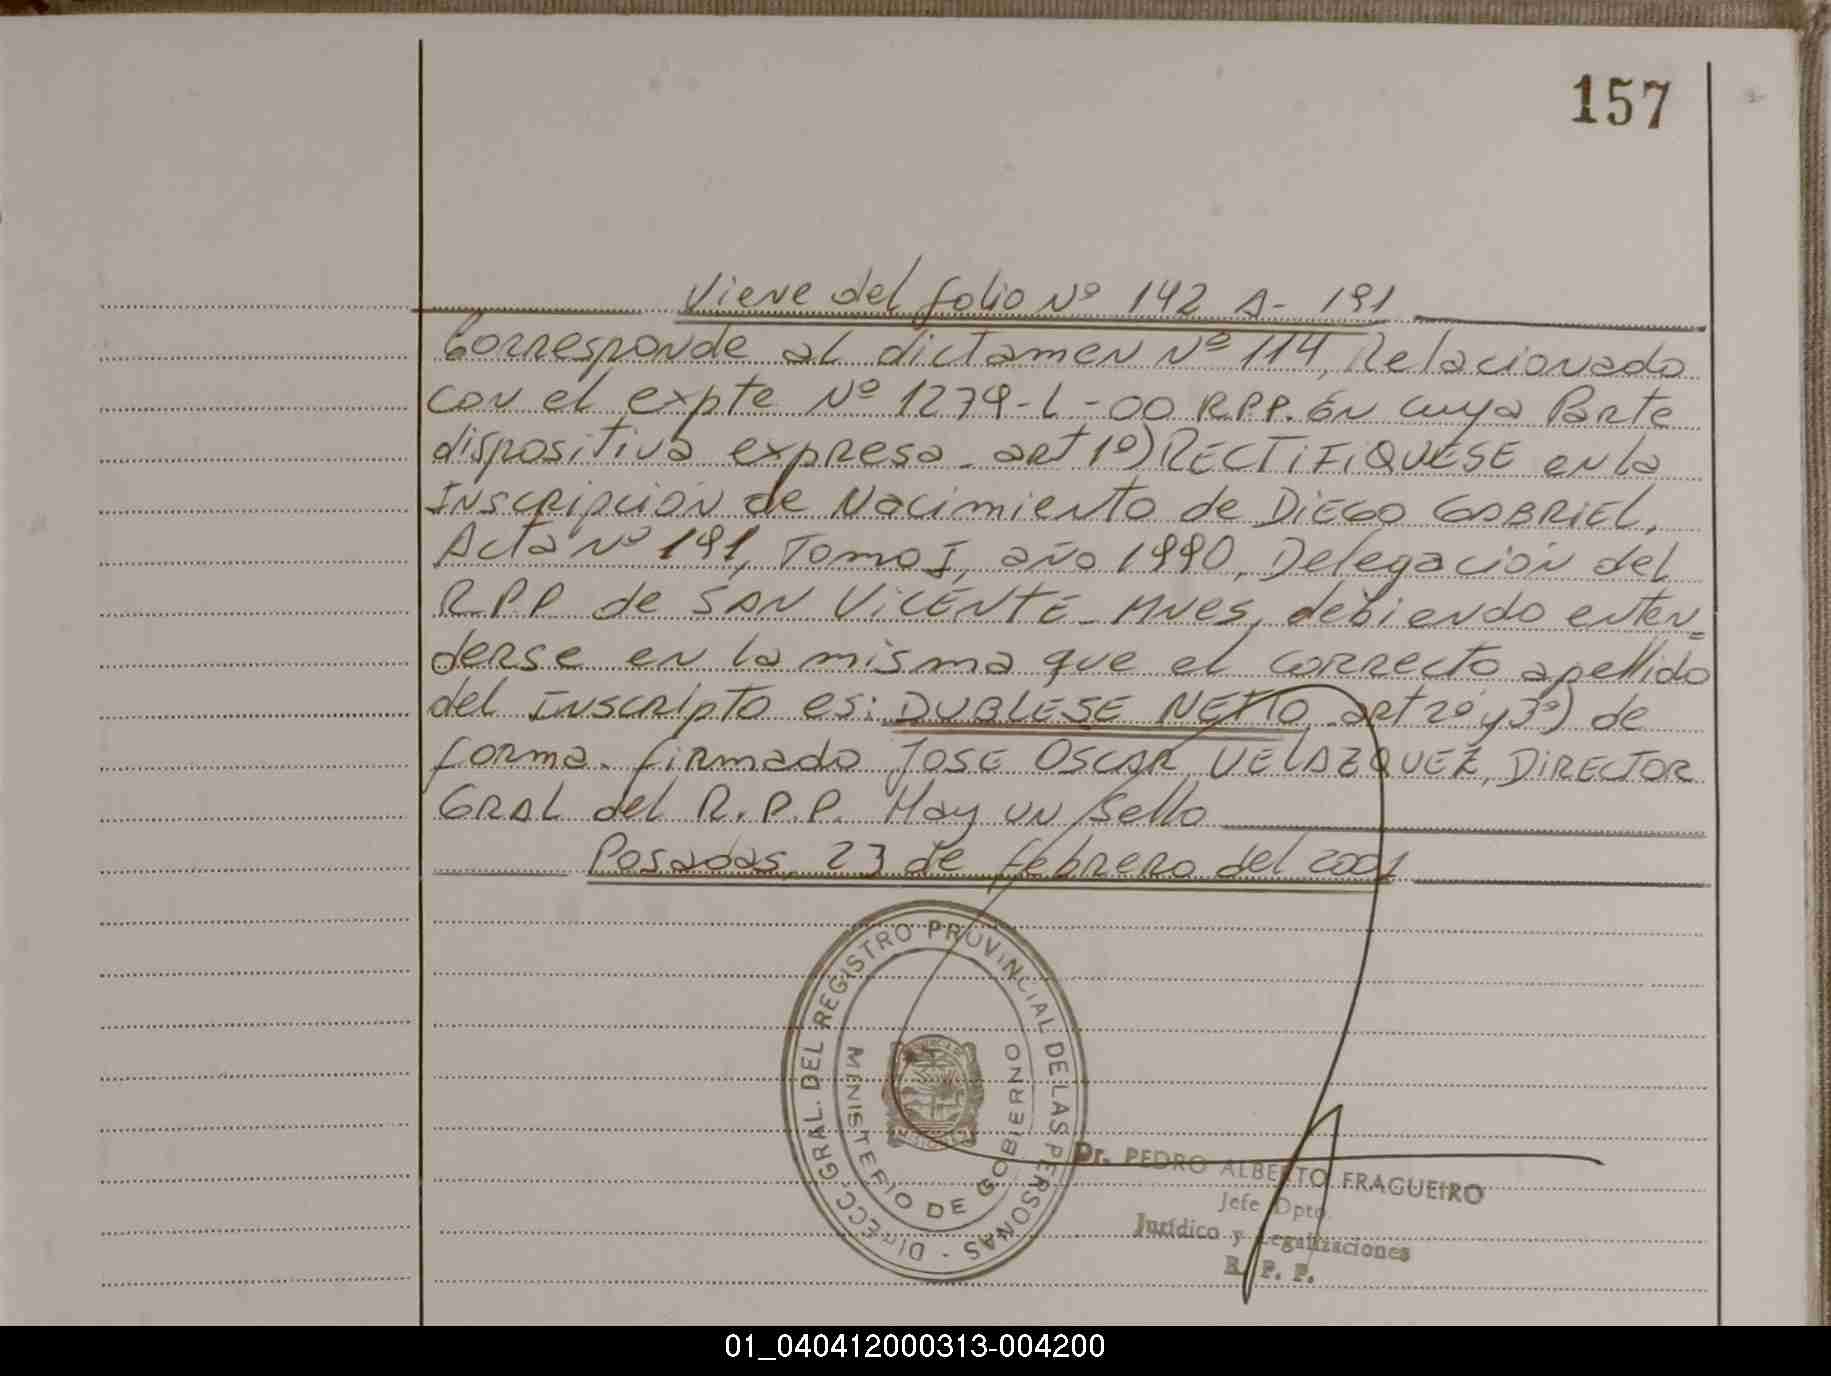 157
Viene del folio Nº 142 A- 191
Corresponde al dictamen Nº 114, Relacionado
con el expte Nº 1279-L-00 R.P.P. En cuya Parte
dispositiva expresa. art 1º) RECTIFIQUESE en la
Inscripción de Nacimiento de DIEGO GABRIEL,
Acta Nº 191, Tomo I, año 1990, Delegación del
R.P.P. de SAN VICENTE - Mnes, debiendo enten=
derse en la misma que el correcto apellido
del Inscripto es: DUBLESE NETTO. art 2º y 3º) de
forma. firmado JOSE OSCAR VELAZQUEZ, DIRECTOR
GRAL del R.P.P. Hay un sello
Posadas, 23 de febrero del 2001
DIRECC. GRAL. DEL REGISTRO PROVINCIAL DE LAS PERSONAS -
MINISTERIO DE GOBIERNO
Dr. PEDRO ALBERTO FRAGUEIRO
Jefe Dpto.
Jurídico y Legalizaciones
R. P. P.
01_040412000313-004200